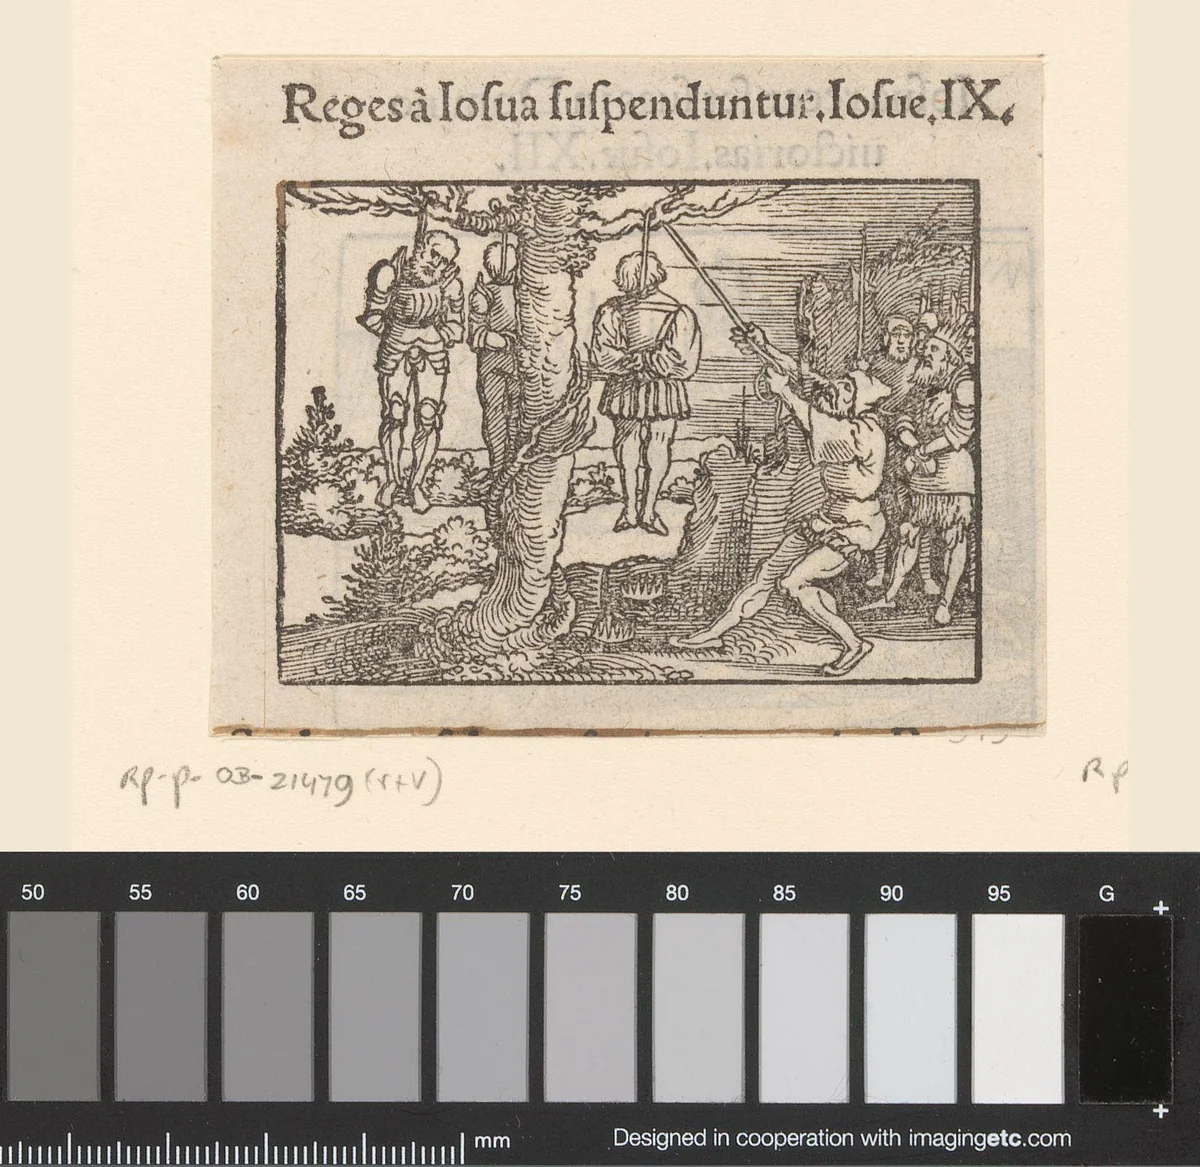 Reges à Ioſua ſuſpenduntur. Ioſue. IX.
uictorias. Ioſue. XII.
RP-P-OB-21479 (r+v)
RP
50 55 60 65 70 75 80 85 90 95 G
mm
Designed in cooperation with imagingetc.com